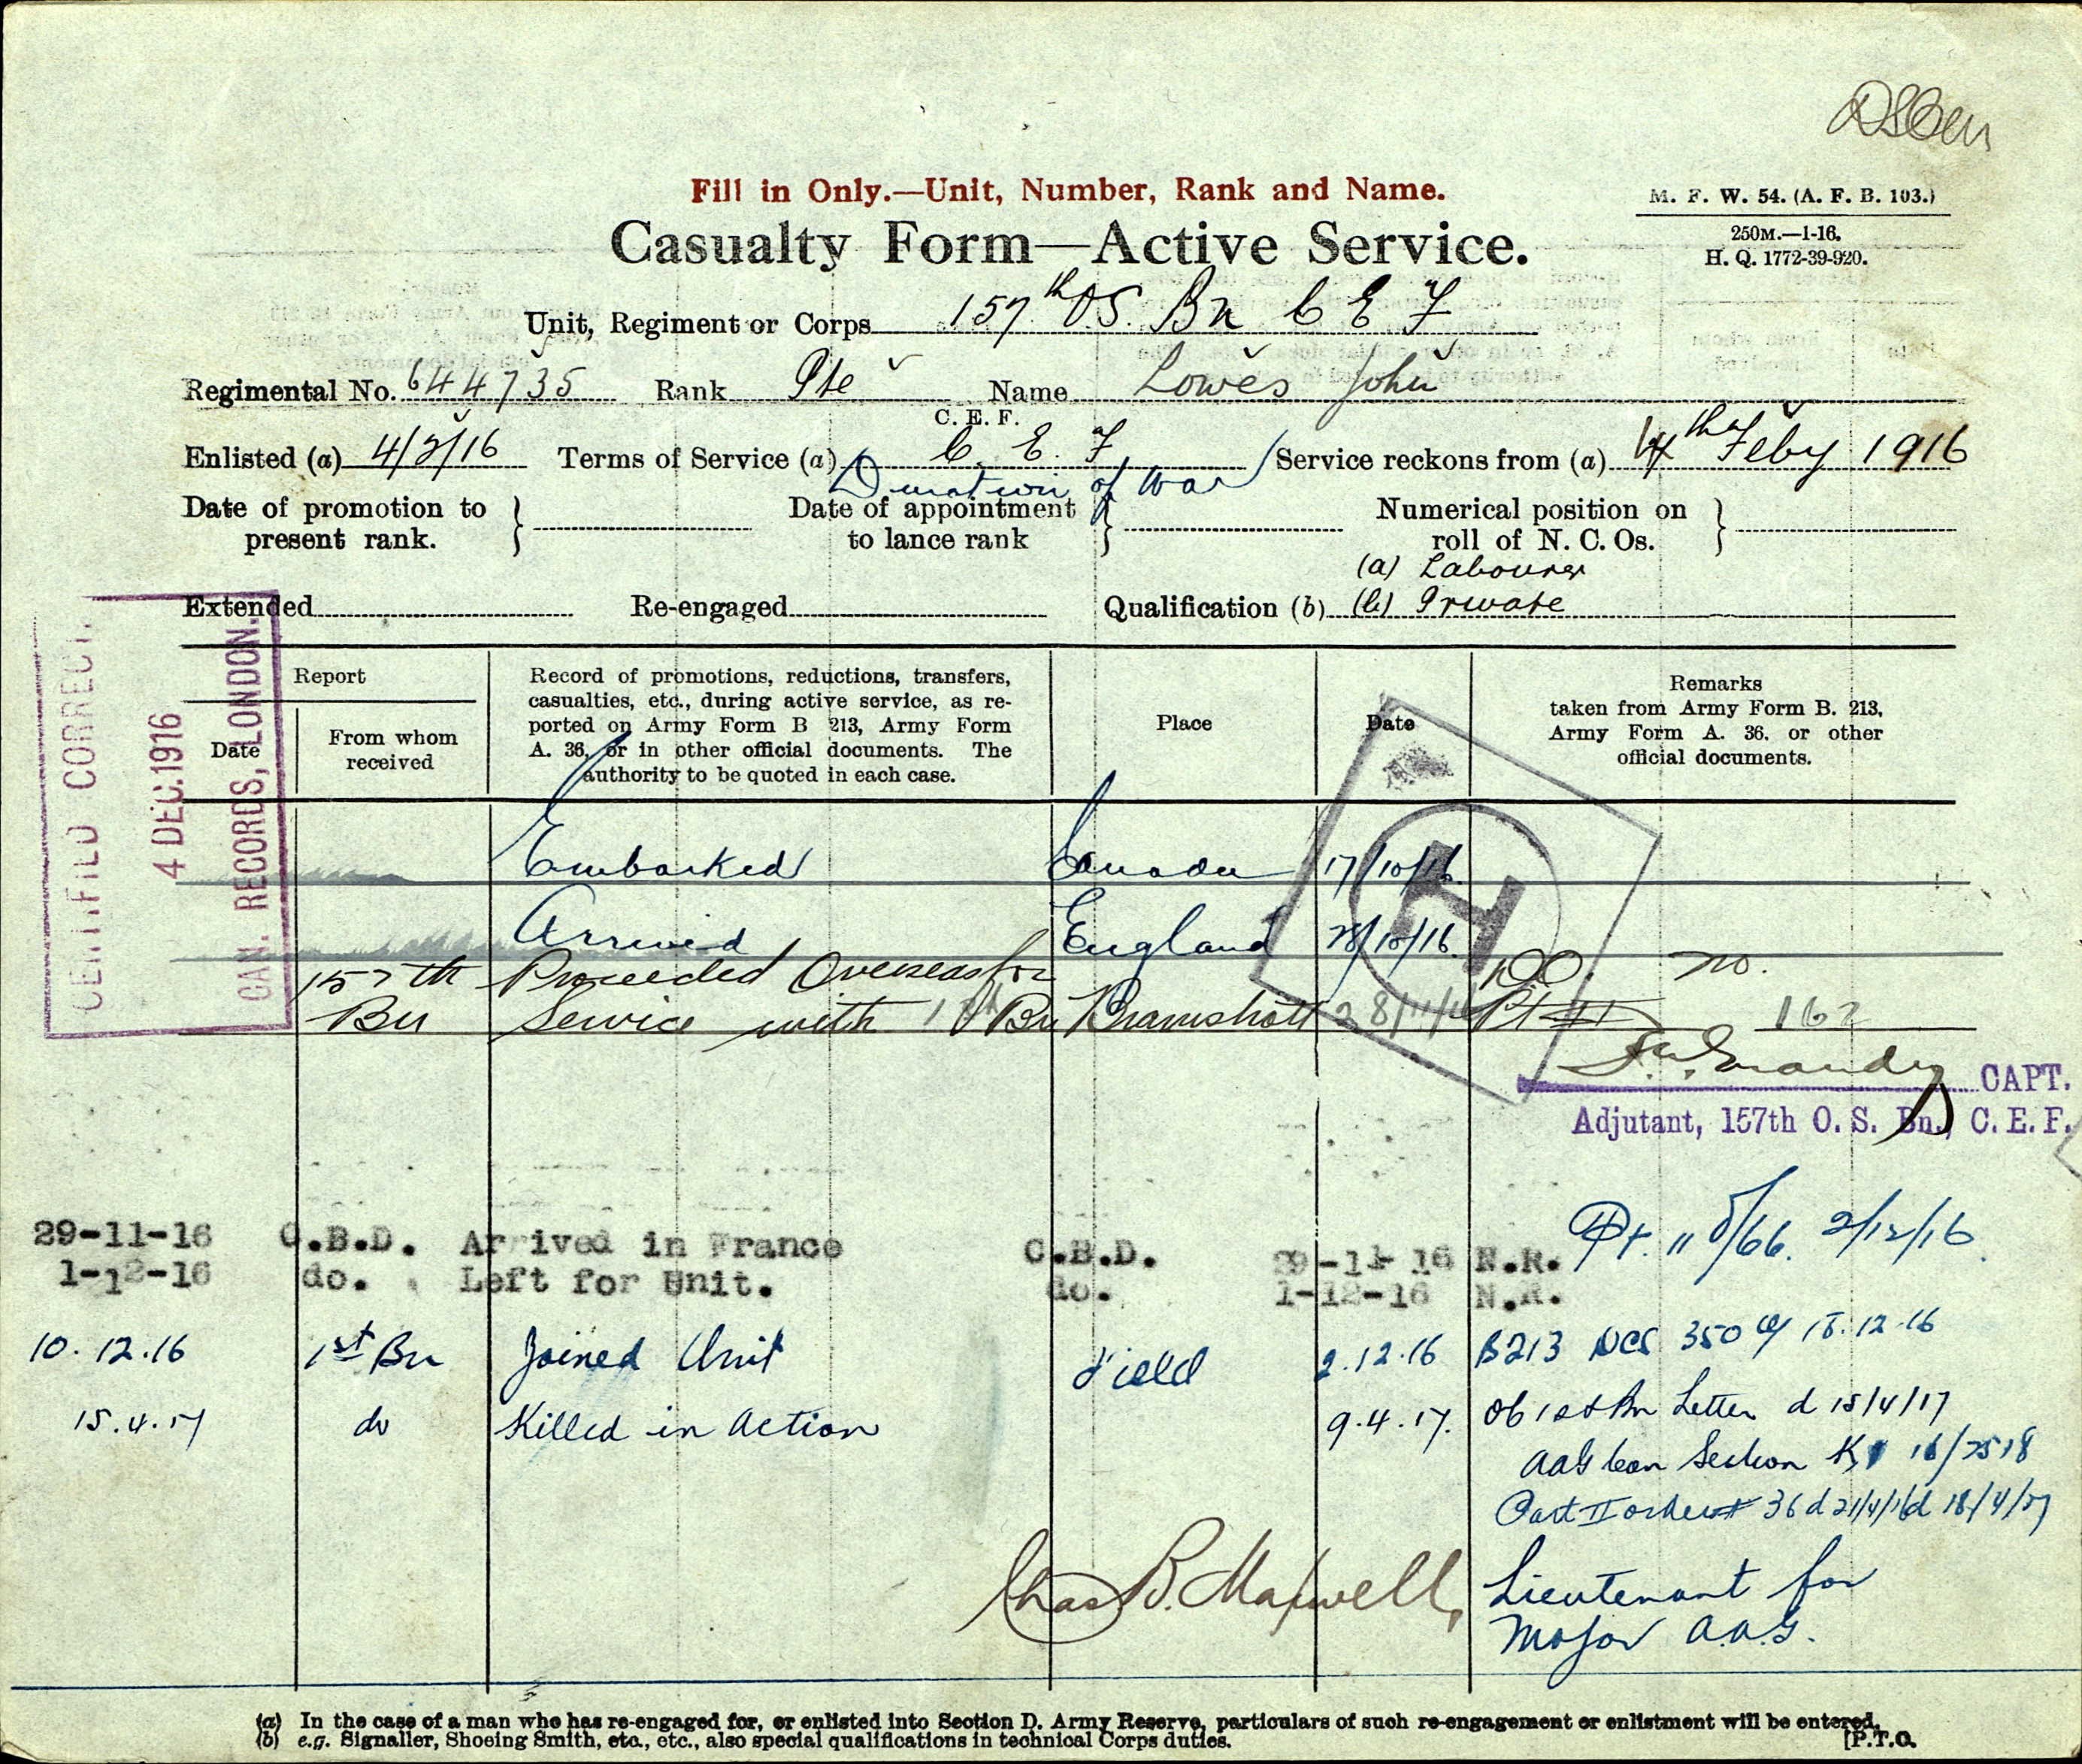 Fill in Only.—Unit, Number, Rank and Name.
M. F. W. 54. (A. F. B. 103.)
250M.—1-16.
H. Q. 1772-39-920.
Casualty Form—Active Service.
Unit, Regiment or Corps 157th O.S. Bn C E F
Regimental No. 644735 Rank Pte Name Lowes John
C. E. F.
Enlisted (a) 4/2/16 Terms of Service (a) C. E. F Service reckons from (a) 4th Feby 1916
Duration of War
Date of promotion to present rank. } Date of appointment to lance rank } Numerical position on roll of N. C. Os. }
(a) Labourer
Extended Re-engaged Qualification (b) (b) Private
CERTIFIED CORRECT.
4 DEC. 1916
CAN. RECORDS, LONDON.
Report
Date
From whom received
Record of promotions, reductions, transfers,
casualties, etc., during active service, as re-
ported on Army Form B 213, Army Form
A. 36, or in other official documents. The
authority to be quoted in each case.
Place
Date
Remarks
taken from Army Form B. 213,
Army Form A. 36. or other
official documents.
Embarked Canada 17/10/16
Arrived England 28/10/16
H
157th Proceeded Overseas for D.O. No.
Bn Service with 1st Bn Bramshott 28/11/16 Pt II 162
CAPT.
Adjutant, 157th O. S. Bn., C. E. F.
Pt. 11 0/66. 2/12/16
29-11-16 C.B.D. Arrived in France C.B.D. 29-11-16 N.R.
1-12-16 do. Left for Unit. do. 1-12-16 N.R.
10.12.16 1st Bn Joined Unit Field 2.12.16 B213 DCS 350 15.12.16
15.4.17 do Killed in Action 9.4.17. OC 1st Bn Letter d 15/4/17
AAG Can Section K 16/2518
Part II order 36 d 21/4/17 d 18/4/17
Chas B. Maxwell, Lieutenant for
Major A.A.G.
(a) In the case of a man who has re-engaged for, or enlisted into Section D. Army Reserve, particulars of such re-engagement or enlistment will be entered.
(b) e.g. Signaller, Shoeing Smith, etc., etc., also special qualifications in technical Corps duties.
[P.T.O.